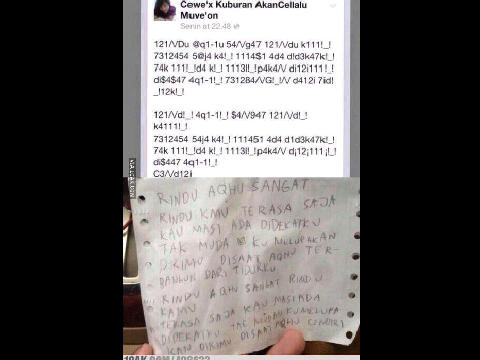 Cewe'x Kuburan AkanCellalu
Muve'on
Senin at 22.48
121/\/Du @q1-1u 54/\/g47 121/\/du k111!_!
7312454 5@j4 k4!_! 1114$1 4d4 d!d3k47k!_!
74k 111!_!d4 k!_! 1113!!_!p4k4/\/ di12i111!_!
di$4$47 4q1-1!_! 731284/\/G!_!/\/ d412i 7iid!
_!12k!_!
121/\/d!_! 4q1-1!_! $4/\/947 121/\/d!_!
k4111!_!
7312454 54j4 k4!_! 111451 4d4 d1d3k47k!_!
74k 111!_!d4 k!_! 1113!!_!p4k4/\/ d¡12¡111¡!_!
di$447 4q1-1!_!
C3/\/d12ii
RINDU AQHU SANGAT
RINDU KMU TERASA SAJA
KAU MASI ADA DIDEKATKU
TAK MUDA KU MELUPAKAN
DIRIMU DISAAT AQHU TER-
BANGUN DARI TIDURKU
RINDU AQHU SANGAT RINDU
KAMU
TERASA SAJA KAU MASI ADA
DIDEKATKU TAK MUDAH KU MELUPA
KAN DIRIMU DISAAT AQHU CENDIRI